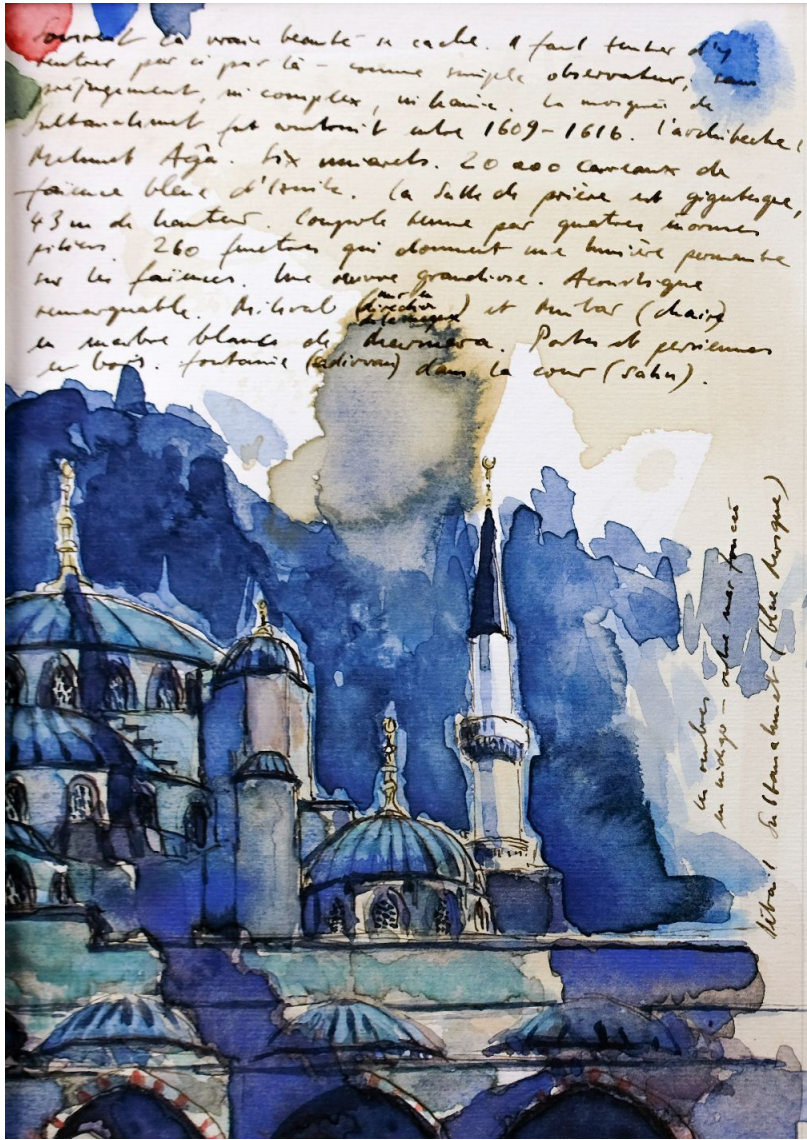 Souvent la vraie beauté se cache. Il faut tenter d'y
rentrer par ci par là - comme simple observateur, sans
préjugement, ni complex, ni haine. La mosquée de
Sultanahmet fut construit entre 1609-1616. L'architecte,
Mehmet Ağa. Six minarets. 20 000 carreaux de
faïence bleue d'Iznik. La salle de prière est gigantesque,
43 m de hauteur. Coupole tenue par quatres énormes
piliers. 260 fenêtres qui donnent une lumière permanente
sur les faïences. Une œuvre grandiose. Acoustique
remarquable. Mihrab (direction de la mecque) et Minbar (chaire)
en marbre blancs de Marmara. Portes et persiennes
en bois. Fontaine (şadirvan) dans la cour (sahn).
les ombres
en indigo - outre mer foncé
détail Sultanahmet (blue Mosque)